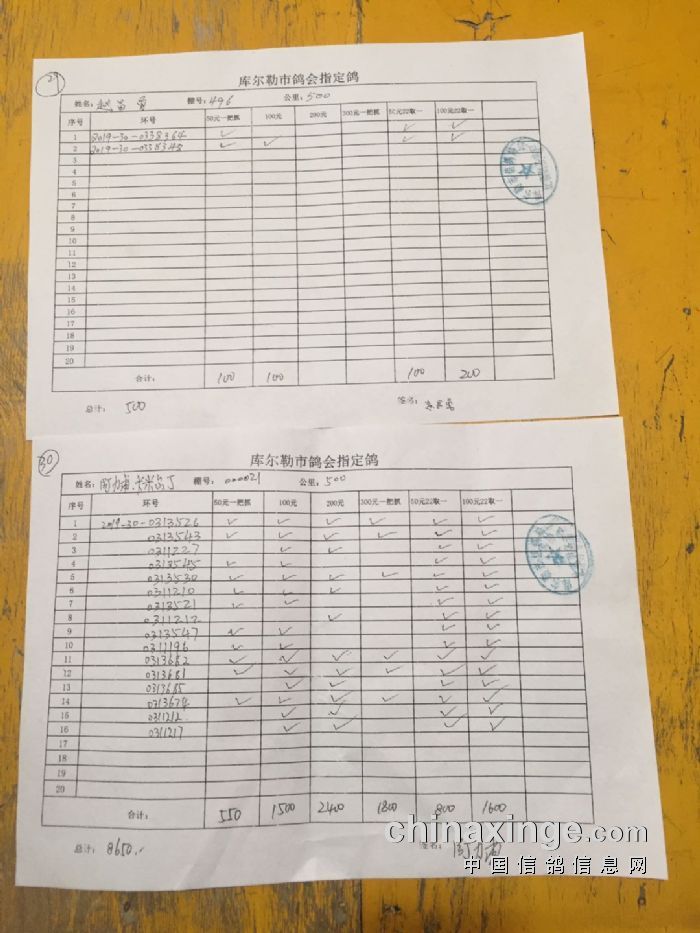 29
库尔勒市鸽会指定鸽
姓名: 棚号: 496 公里: 500
序号 环号 50元一把抓 100元 200元 300元一把抓 50元22取一 100元22取一
1 2019-30-0338364 ✓ ✓ ✓
2 2019-30-0338345 ✓ ✓ ✓ ✓
3
4
5
6
7
8
9
10
11
12
13
14
15
16
17
18
19
20
合计: 100 100 100 200
总计: 500 签名:
30
库尔勒市鸽会指定鸽
姓名: 棚号: 000021 公里: 500
序号 环号 50元一把抓 100元 200元 300元一把抓 50元22取一 100元22取一
1 2019-30-0313526 ✓ ✓ ✓ ✓ ✓ ✓
2 0313543 ✓ ✓ ✓ ✓ ✓ ✓
3 0311227 ✓ ✓ ✓ ✓
4 0313545 ✓ ✓ ✓ ✓
5 0313530 ✓ ✓ ✓ ✓ ✓ ✓
6 0311210 ✓ ✓ ✓ ✓ ✓
7 0313521 ✓ ✓ ✓ ✓ ✓
8 0311212 ✓ ✓ ✓
9 0313547 ✓ ✓ ✓ ✓
10 0311196 ✓ ✓ ✓ ✓
11 0313682 ✓ ✓ ✓ ✓ ✓ ✓
12 0313681 ✓ ✓ ✓ ✓ ✓ ✓
13 0313685 ✓ ✓ ✓ ✓
14 0313674 ✓ ✓ ✓ ✓ ✓ ✓
15 ✓ ✓ ✓ ✓
16 0311217 ✓ ✓ ✓ ✓
17
18
19
20
合计: 550 1500 2400 1800 800 1600
总计: 8650.- 签名:
chinaxinge.com
中国信鸽信息网